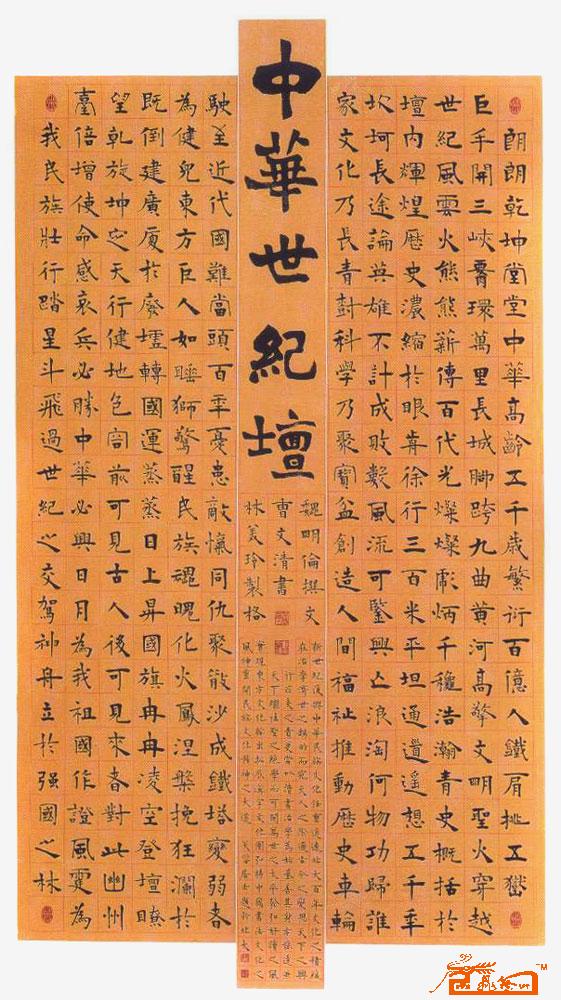 朗朗乾坤堂堂中華高齡五千歲繁衍百億人鐵肩挑五嶽
巨手開三峽臂環萬里長城腳跨九曲黃河高擎文明聖火穿越
世紀風雲火熊熊薪傳百代光燦燦彪炳千穐浩瀚青史概括於
壇內輝煌歷史濃縮於眼前徐行三百米平坦通道遥想五千年
坎坷長途論英雄不計成敗數風流可鑒興亡浪淘何物功歸誰
家文化乃長青尌科學乃聚寶盆創造人間福祉推動歷史車輪
中華世紀壇
魏明倫撰文
曹文清書
林美玲製格
駛至近代國難當頭百年憂患敵愾同仇聚散沙成鐵塔變弱者
為健兒東方巨人如睡獅驚醒民族魂魄化火鳳涅槃挽狂瀾於
既倒建廣厦於廢墟轉國運蒸蒸日上昇國旗冉冉凌空登壇瞭
望乾旋坤定天行健地包容前可見古人後可見來者對此幽州
臺倍增使命感哀兵必勝中華必興日月為我祖國作證風雲為
我民族壯行踏星斗飛過世紀之交駕神舟立於强國之林